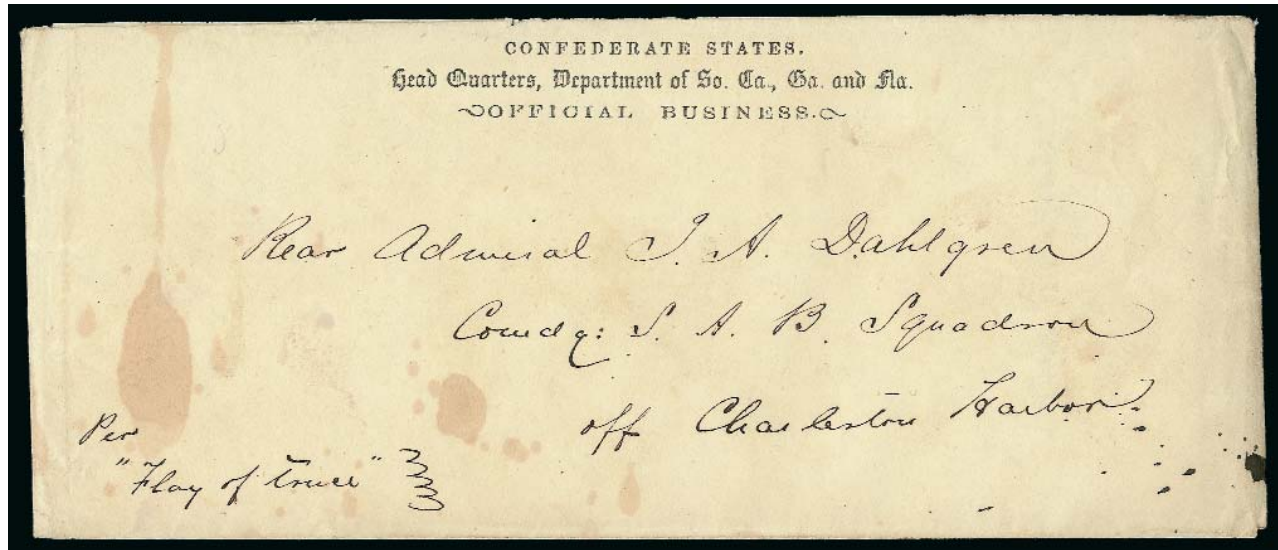 CONFEDERATE STATES.
Head Quarters, Department of So. Ca., Ga. and Fla.
OFFICIAL BUSINESS.
Rear Admiral J. A. Dahlgren
Comdg: S. A. B Squadron
off Charleston Harbor.
Per
"Flag of Truce"